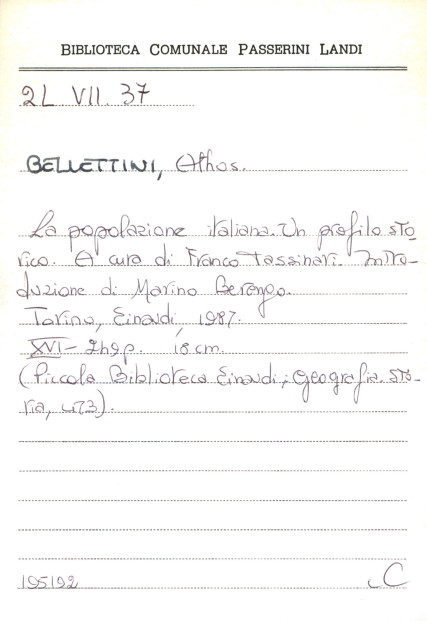 BIBLIOTECA COMUNALE PASSERINI LANDI
2L VII. 37
BELLETTINI, Athos.
La popolazione italiana. Un profilo sto
rico. A cura di Franco Tassinari. Intro-
duzione di Marino Berengo.
Torino, Einaudi, 1987.
XVI-249p. 18 cm.
(Piccola Biblioteca Einaudi; Geografia. sto-
ria, 473).
195192 C